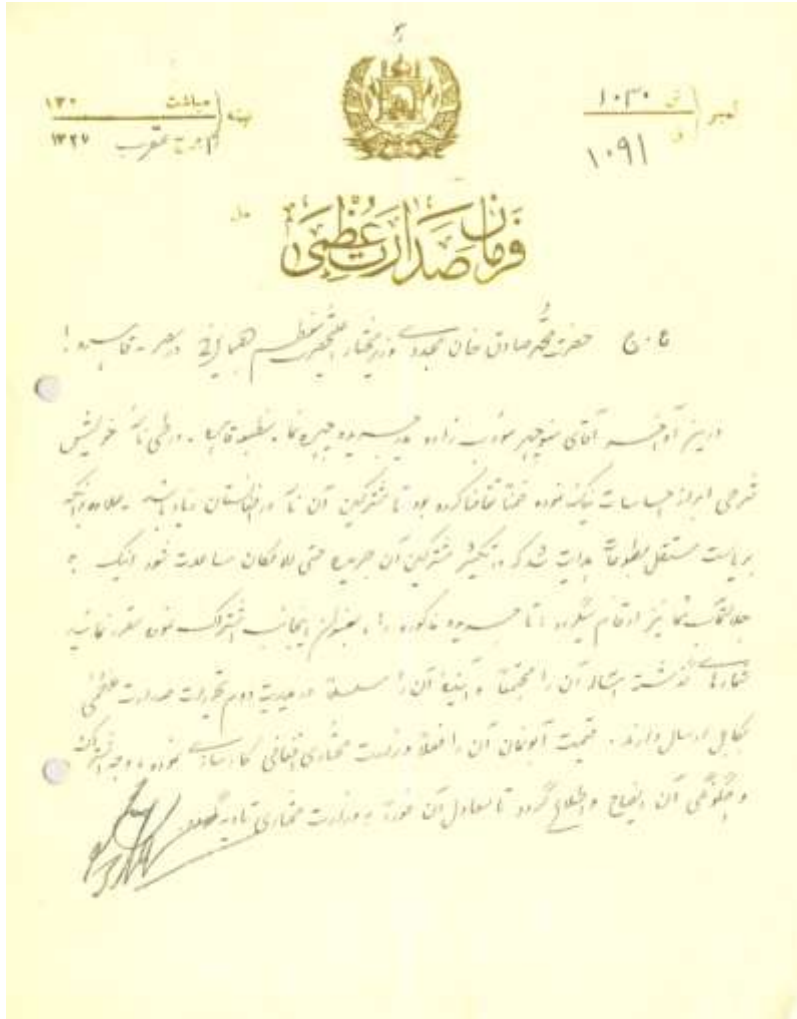 هو
نمبر ( ش ۱۰۳۰
ق ۱۰۹۱
میاشت ۱۳۲
۱۳۲۷ عقرب
فرمان صدارت عظمی
ع.ج حضرت محمد صادق خان مجددی وزیر مختار اعلیحضرت معظم همایونی در مصر - قاهره !
درین آواخر آقای منوچهر مؤدب زاده مدیر جریده چهره نما مطبعه قاهره در طی نامه خویش
شرحی ابراز احساسات نیک نموده ضمناً تقاضا کرده بود تا مشترکین آن نامه در افغانستان زیاد باشد علاوه بر آنکه
بریاست مستقل مطبوعات هدایت شد که در تکثیر مشترکین آن جریده حتی الامکان مساعدت شود اینک به
جلالتمآب شما نیز ارقام میگردد تا جریده مذکوره را بعنوان اینجانب اشتراک نمون مقرر نمائید
شماره های گذشته امساله آن را مجتمعاً و آینده آن را مسلسلاً مدیریت دوم تحریرات صدارت عظمی
بکابل ارسال دارند . قیمت آبونمان آن را فعلاً وزارت مختاری افغانی کارسازی نموده وجه اشتراک
و چگونگی آن ایضاح و اطلاع گردد تا معادل آن فوراً به وزارت مختاری تادیه گردد